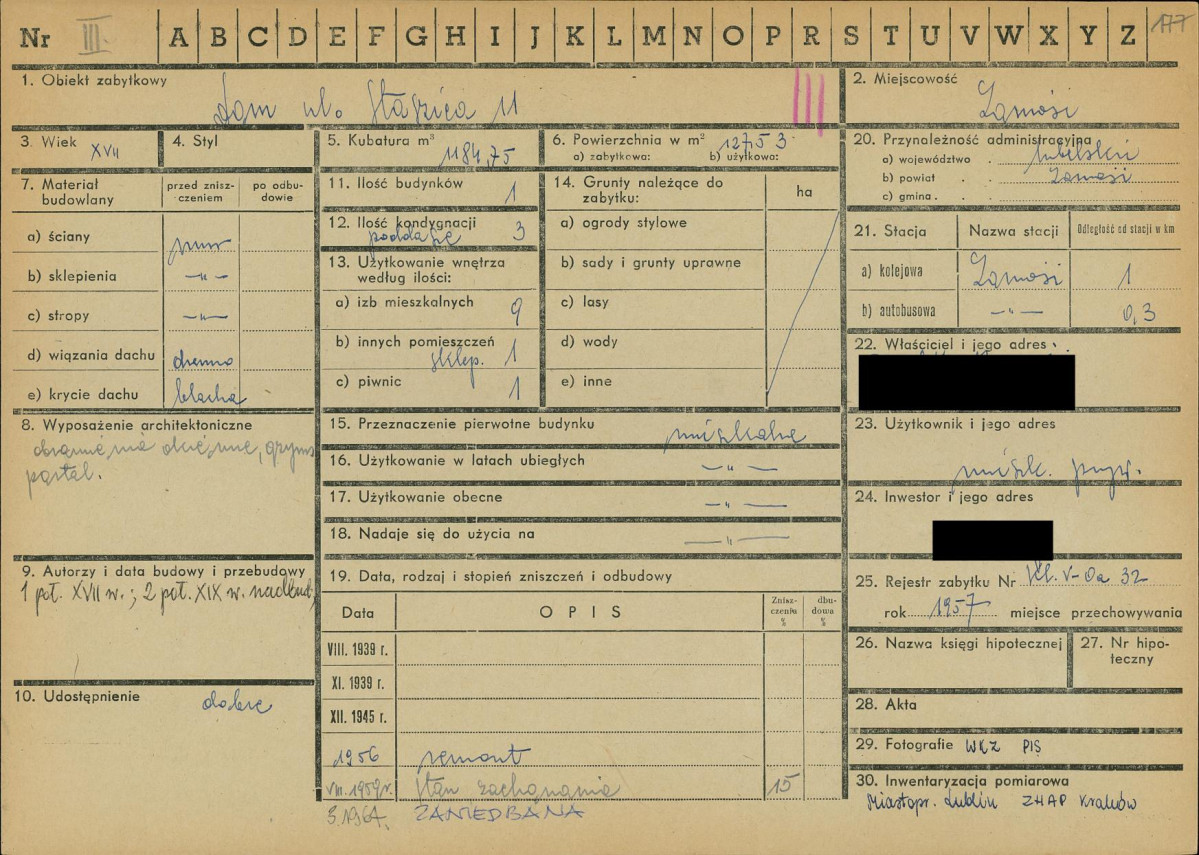 Nr III A B C D E F G H I J K L M N O P R S T U V W X Y Z 177
1. Obiekt zabytkowy
Dom ul. Staszica 11
III
2. Miejscowość
Zamość
3. Wiek XVII
4. Styl
5. Kubatura m³
1184,75
6. Powierzchnia w m²
a) zabytkowa: b) użytkowo:
20. Przynależność administracyjna
a) województwo lubelskie
b) powiat Zamość
c) gmina
7. Materiał budowlany
przed zniszczeniem
po odbudowie
a) ściany mur
b) sklepienia —"—
c) stropy —"—
d) wiązania dachu drewno
e) krycie dachu blacha
11. Ilość budynków 1
12. Ilość kondygnacji 3
poddasze
13. Użytkowanie wnętrza
według ilości:
a) izb mieszkalnych 9
b) innych pomieszczeń
sklep. 1
c) piwnic 1
14. Grunty należące do
zabytku:
ha
a) ogrody stylowe
b) sady i grunty uprawne
c) lasy
d) wody
e) inne
21. Stacja Nazwa stacji Odległość od stacji w km
a) kolejowa Zamość 1
b) autobusowa —"— 0,3
22. Właściciel i jego adres
8. Wyposażenie architektoniczne
gzyms
portal.
15. Przeznaczenie pierwotne budynku mieszkalne
16. Użytkowanie w latach ubiegłych —"—
17. Użytkowanie obecne —"—
18. Nadaje się do użycia na —"—
23. Użytkownik i jego adres
mieszk. pryw.
24. Inwestor i jego adres
9. Autorzy i data budowy i przebudowy
1 poł. XVII w.; 2 poł. XIX w. nadbud.
19. Data, rodzaj i stopień zniszczeń i odbudowy
Data OPIS Zniszczeniu % dbudowa %
VIII. 1939 r.
XI. 1939 r.
XII. 1945 r.
1956 remont
VIII. 1959 r. Stan zachowania 15
3.1964. ZANIEDBANA
10. Udostępnienie dobre
25. Rejestr zabytku Nr Kl. V-Oa 32
rok 1957 miejsce przechowywania
26. Nazwa księgi hipotecznej
27. Nr hipoteczny
28. Akta
29. Fotografie WKZ PIS
30. Inwentaryzacja pomiarowa
Miastopr. Lublin ZHAP Kraków